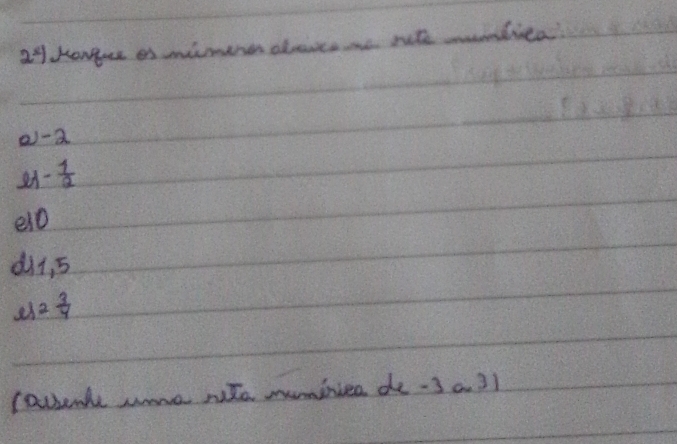 2ª) Marque os números abaixo na reta numérica.
a) -2
b) -1/2
c) 0
d) 1,5
e) 2 3/4
(desenhe uma reta numérica de -3 a 3)